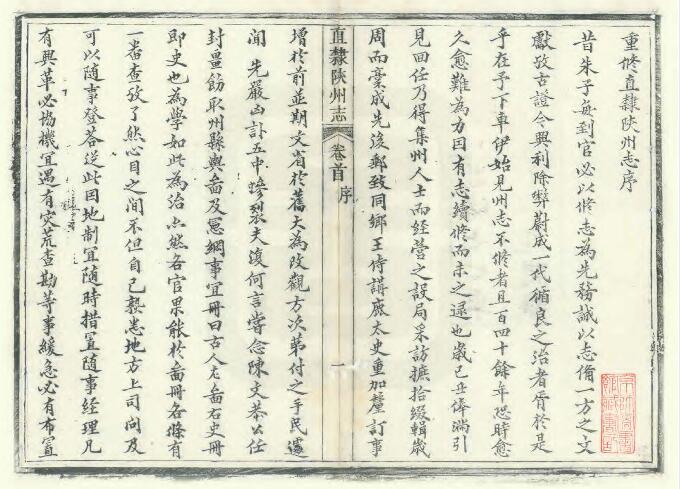 重修直隸陜州志序
昔朱子每到官必以修志為先務誠以志備一方之文
獻攷古證今興利除弊蔚成一代循良之治者胥於是
乎在予下車伊始見州志不修者且百四十餘年恐時愈
久愈難為力因有志續修而未之逮也歲己丑俸滿引
見回任乃得集州人士而經營之設局采訪摭拾綴輯歲
周而稾成先後郵致同鄉王侍講庶太史重加釐訂事
直隸陜州志
卷首
序
一
增於前並期文省於舊大為改觀方次第付之手民遽
聞 先嚴凶訃五中慘裂夫復何言嘗念陳文恭公任
封畺飭取州縣輿啚及冩綱事宜冊曰古人左啚右史冊
即史也為學如此為治亦然各官果能於啚冊各條有
一番查攷了然心目之間不但自己熟悉地方上司問及
可以隨事登荅從此因地制宜隨時措置隨事經理凡
有興革必協機宜遇有災荒查勘等事緩急必有布置